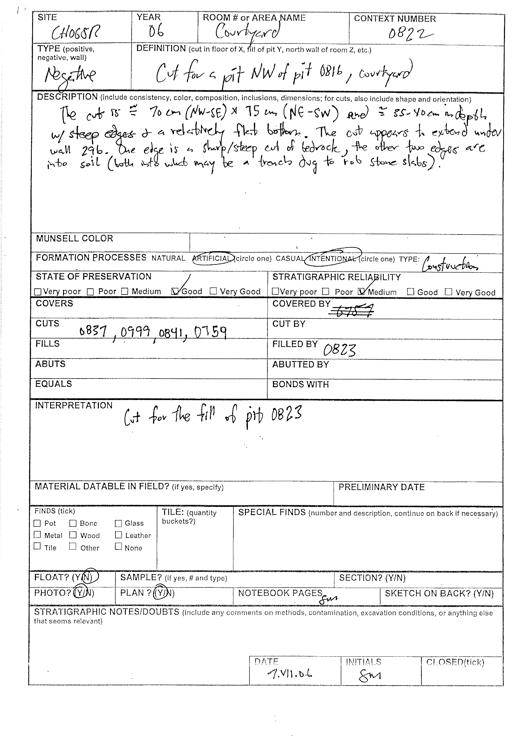 SITE YEAR ROOM # or AREA NAME CONTEXT NUMBER
CHO6SR 06 Courtyard 0822
TYPE (positive, negative, wall) DEFINITION (cut in floor of X, fill of pit Y, north wall of room Z, etc.)
Negative Cut for a pit NW of pit 0816, courtyard
DESCRIPTION (include consistency, color, composition, inclusions, dimensions; for cuts, also include shape and orientation)
The cut is ≅ 70 cm (NW-SE) x 75 cm (NE-SW) and ≅ 35-40 cm in depth
w/ steep edges & a relatively flat bottom. The cut appears to extend under
wall 296. One edge is a sharp/steep cut of bedrock, the other two edges are
into soil (both into what may be a trench dug to rob stone slabs).
MUNSELL COLOR
FORMATION PROCESSES NATURAL ARTIFICIAL (circle one) CASUAL INTENTIONAL (circle one) TYPE: Construction
STATE OF PRESERVATION STRATIGRAPHIC RELIABILITY
Very poor Poor Medium Good Very Good Very poor Poor Medium Good Very Good
COVERS COVERED BY
CUTS 0837, 0999, 0841, 0759 CUT BY
FILLS FILLED BY 0823
ABUTS ABUTTED BY
EQUALS BONDS WITH
INTERPRETATION Cut for the fill of pit 0823
MATERIAL DATABLE IN FIELD? (if yes, specify) PRELIMINARY DATE
FINDS (tick) TILE: (quantity buckets?) SPECIAL FINDS (number and description, continue on back if necessary)
Pot Bone Glass
Metal Wood Leather
Tile Other None
FLOAT? (Y/N) SAMPLE? (if yes, # and type) SECTION? (Y/N)
PHOTO? (Y/N) PLAN? (Y/N) NOTEBOOK PAGES SKETCH ON BACK? (Y/N)
STRATIGRAPHIC NOTES/DOUBTS (Include any comments on methods, contamination, excavation conditions, or anything else
that seems relevant)
DATE INITIALS CLOSED(tick)
7.VII.06